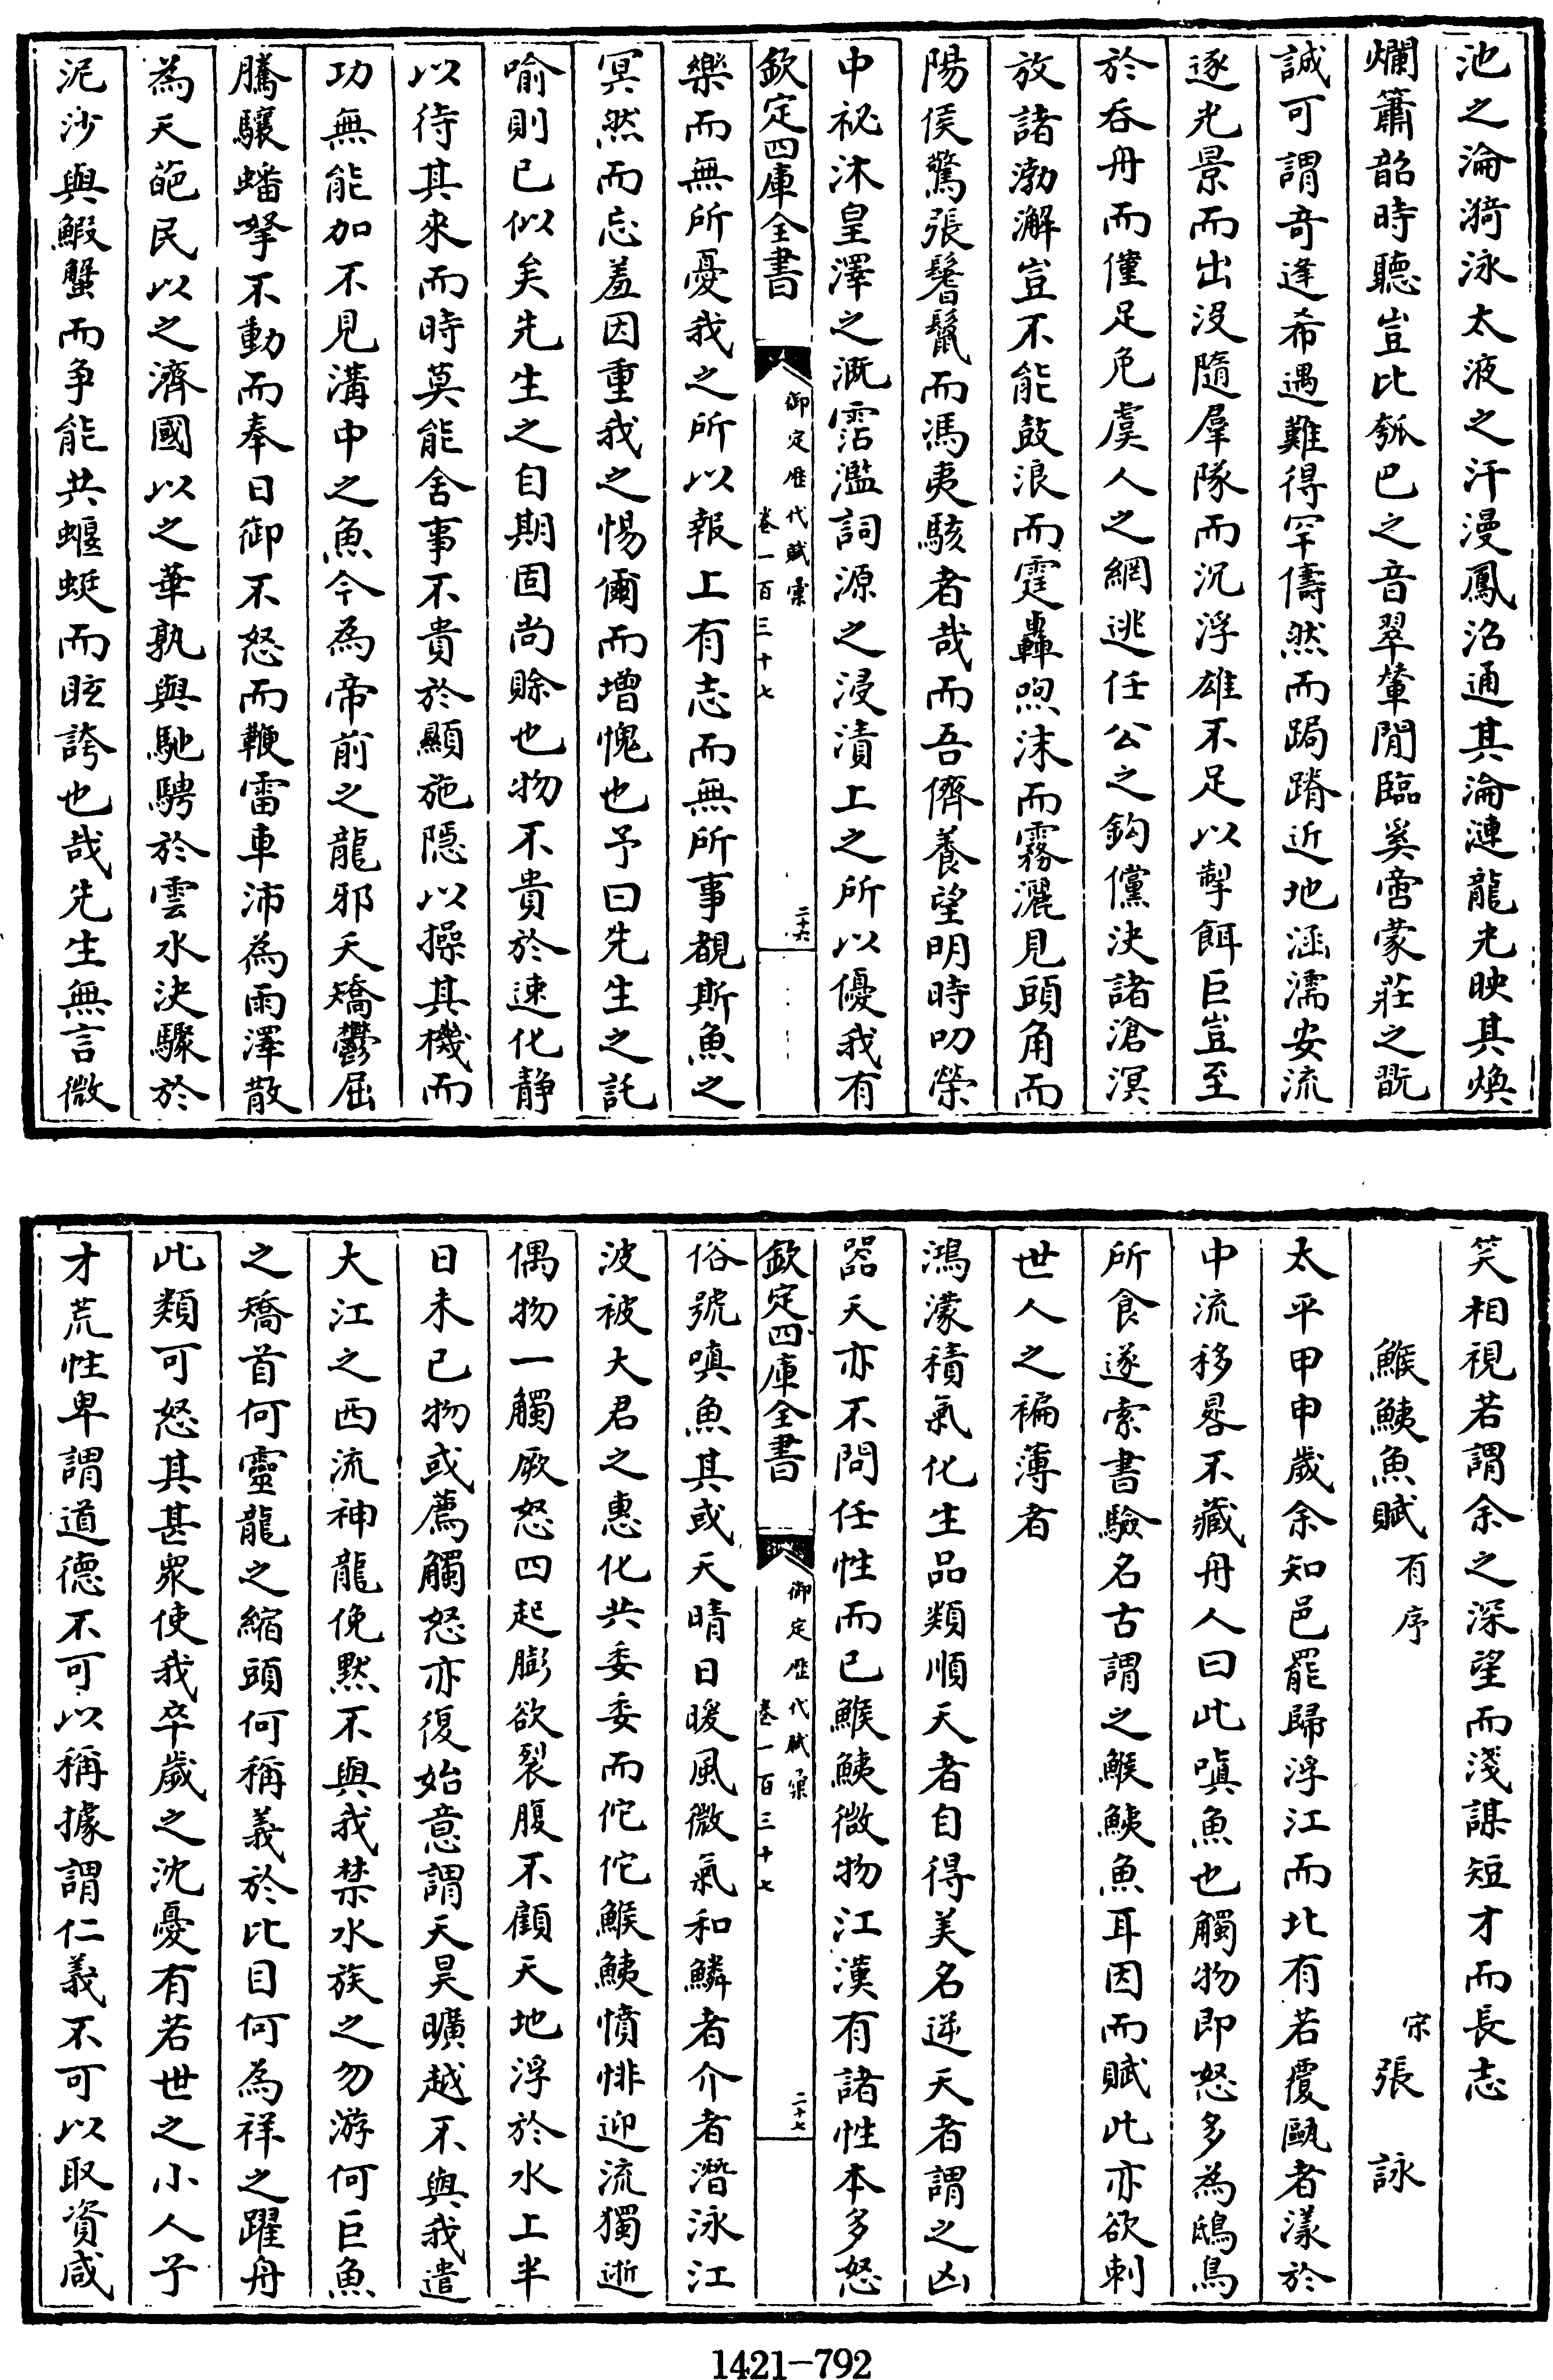 池之淪漪泳太液之汗漫鳳沼通其淪漣龍光映其煥
爛簫韶時聽豈比瓠巴之音翠輦閒臨奚啻蒙莊之翫
誠可謂竒逢希遇難得罕儔然而跼蹐近地涵濡安流
逐光景而出没隨羣隊而沉浮雄不足以掣餌巨豈至
於吞舟而僅足免虞人之網逃任公之鈎儻決諸滄溟
放諸渤澥豈不能鼓浪而霆轟呴沫而霧灑見頭角而
陽侯驚張鬐鬛而馮夷駭者哉而吾儕養望明時叨榮
中祕沐皇澤之漑霑濫詞源之浸漬上之所以優我有
欽定四庫全書
御定歴代賦彚
卷一百三十七
二十六
樂而無所憂我之所以報上有志而無所事覩斯魚之
冥然而忘羞因重我之惕爾而增愧也予曰先生之託
喻則已似矣先生之自期固尚賒也物不貴於速化静
以待其來而時莫能舍事不貴於顯施隠以操其機而
功無能加不見溝中之魚今為帝前之龍邪夭矯鬱屈
騰驤蟠拏不動而奉日御不怒而鞭雷車沛為雨澤散
為天葩民以之濟國以之華孰與馳騁於雲水決驟於
泥沙與鰕蟹而争能共蝘蜓而眩誇也哉先生無言微
笑相視若謂余之深望而淺謀短才而長志
鯸鮧魚賦有序
宋張詠
太平甲申歲余知邑罷歸浮江而北有若覆甌者漾於
中流移晷不藏舟人曰此嗔魚也觸物即怒多為鴟鳥
所食遂索書驗名古謂之鯸鮧魚耳因而賦此亦欲刺
世人之褊薄者
鴻濛積氣化生品類順天者自得美名逆天者謂之凶
器天亦不問任性而已鯸鮧微物江漢有諸性本多怒
欽定四庫全書
御定歴代賦彚
卷一百三十七
二十七
俗號嗔魚其或天晴日暖風微氣和鱗者介者潛泳江
波被大君之惠化共委委而佗佗鯸鮧憤悱迎流獨逝
偶物一觸厥怒四起膨欲裂腹不顧天地浮於水上半
日未已物或薦觸怒亦復始意謂天昊曠越不與我遣
大江之西流神龍俛默不與我禁水族之勿游何巨魚
之矯首何靈龍之縮頭何稱義於比目何為祥之躍舟
此類可怒其甚衆使我卒歲之沈憂有若世之小人孑
才荒性卑謂道德不可以稱據謂仁義不可以取資咸
1421-792